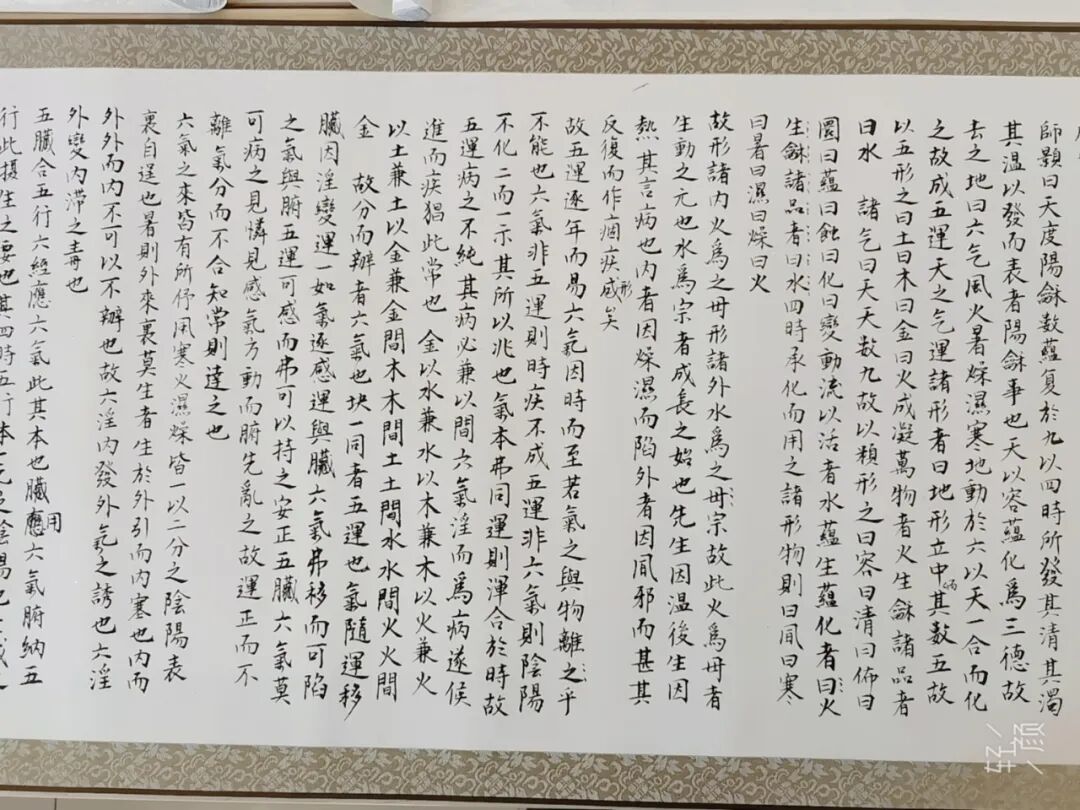 師顥曰天度陽龢数蘊复於九以四時所發其清其濁
其温以發而表者陽龢事也天以容蘊化爲三德故
去之地曰六气風火暑燥濕寒地動於六以天一合而化
之故成五運天之气運諸形者曰地形立中其数五故
以五形之曰土曰木曰金曰火成凝萬物者火生龢諸品者
曰水 諸气曰天天数九故以類形之曰容曰清曰佈曰
圜曰蘊曰蝕曰化曰變動流以活者水蘊生蘊化者曰火
生龢諸品者曰水四時承化而用之諸形物則曰風曰寒
曰暑曰濕曰燥曰火
故形諸内火爲之毋形諸外水爲之毋宗故此火爲毋者
生動之元也水爲宗者成長之始也先生因温後生因
熱其言病也内者因燥濕而陷外者因風邪而甚其
反復而作痼疾咸形矣
故五運逐年而易六氣因時而至若氣之與物離之乎
不能也六氣非五運則時疾不成五運非六氣則陰陽
不化二而一示其所以兆也氣本弗同運則渾合於時故
五運病之不純其病必兼以間六氣淫而爲病遂候
進而疾猖此常也 金以水兼水以木兼木以火兼火
以土兼土以金兼金間木木間土土間水水間火火間
金 故分而辨者六氣也块一同者五運也氣隨運移
臟因淫變運一如氣逐感運與臟六氣弗移而可陷
之氣與腑五運可感而弗可以持之安正五臟六氣莫
可病之見憐見感氣方動而腑先亂之故運正而不
離氣分而不合知常則達之也
六氣之來皆有所伃風寒火濕燥皆一以二分之陰陽表
裏自逞也暑則外來裏莫生者生於外引而内塞也内而
外外而内不可以不辨也故六淫内發外氣之誘也六淫
外變内滯之毒也
五臟合五行六經應六氣此其本也臟應用六氣腑納五
行此摄生之要也其四時五行本一元之陰陽也